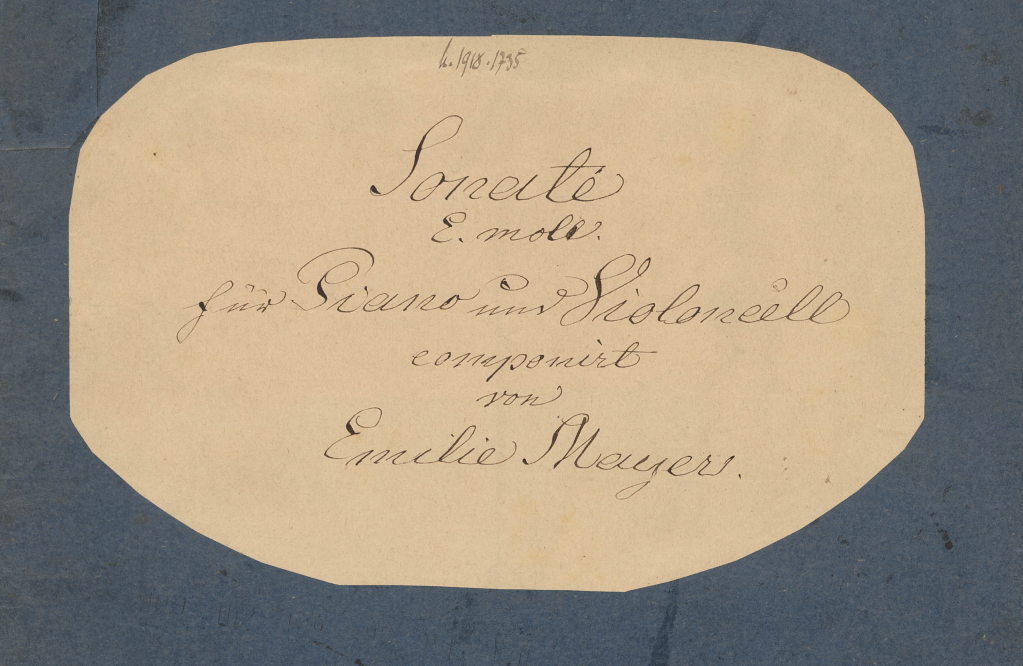 h. 1918.1735
Sonate
E. moll.
für Piano und Violoncell
componirt
von
Emilie Mayer.